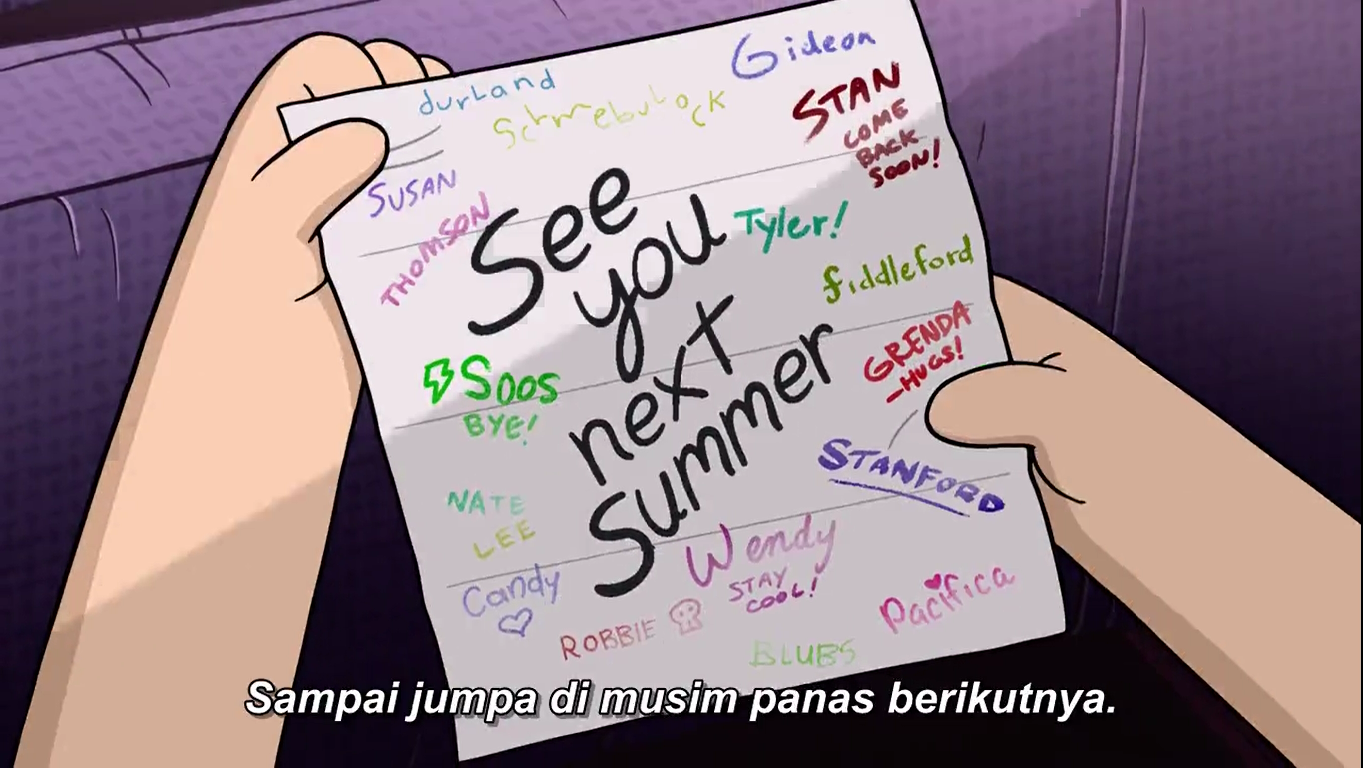 durland
Gideon
Schmebulock
STAN
COME
BACK
SOON!
SUSAN
THOMSON
See
you
next
summer
Tyler!
fiddleford
Soos
BYE!
GRENDA
-HUGS!
STANFORD
NATE
LEE
Candy
Wendy
STAY
COOL!
ROBBIE
Pacifica
BLUBS
Sampai jumpa di musim panas berikutnya.